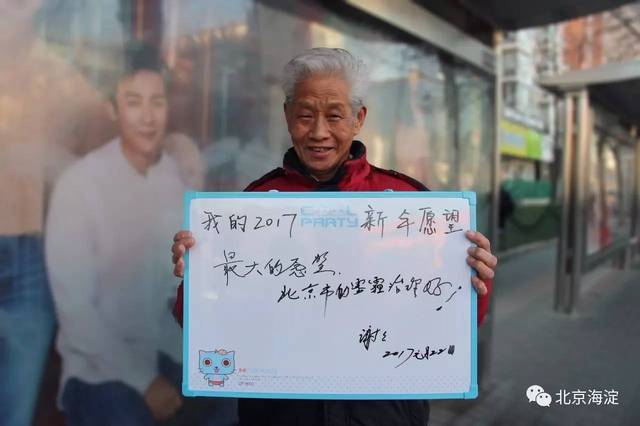 我的2017 新年愿望
PARTY
最大的愿望,
北京市的雾霾治理好!
谢谢
北京海淀